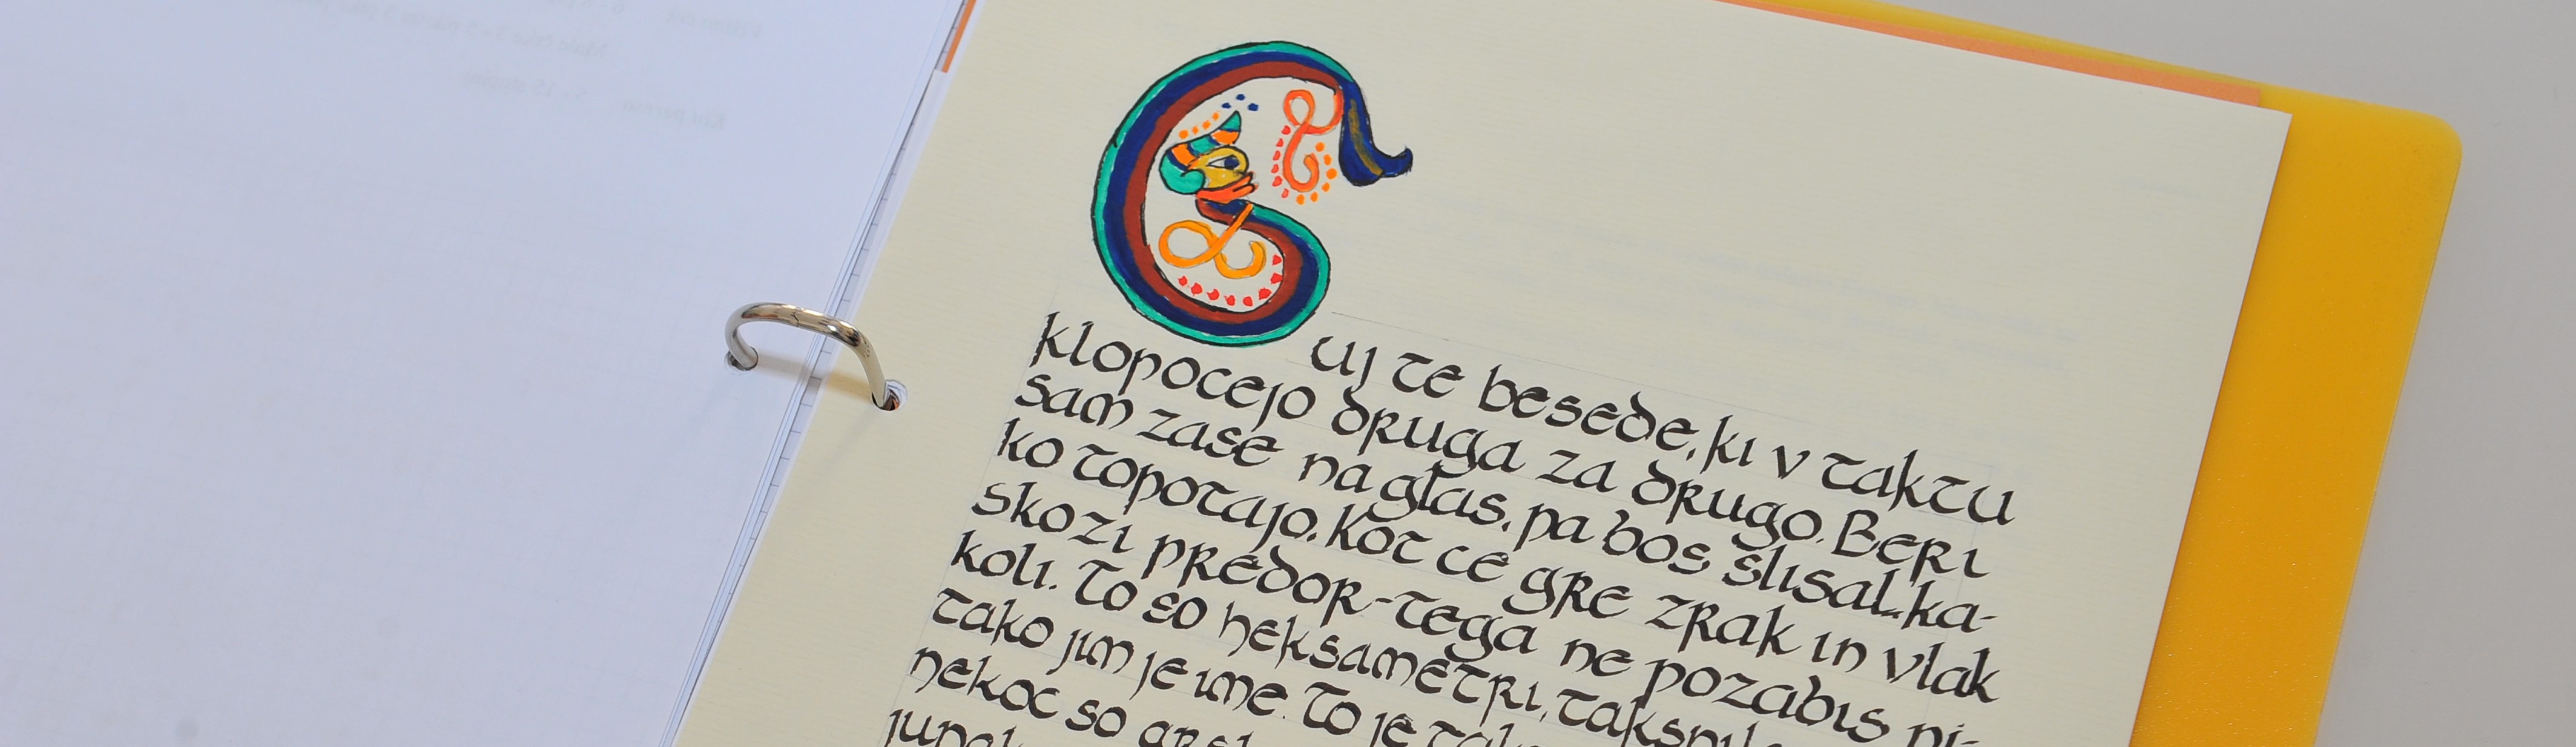 Cuj te besede, ki v taktu
klopocejo druga za drugo. Beri
sam zase na glas, pa bos šlisal, ka-
ko topotajo. Kot ce gre zrak in vlak
skozi predor-tega ne pozabis ni-
koli. To so heksametri,
tako jim je ime. To je
nekoc so